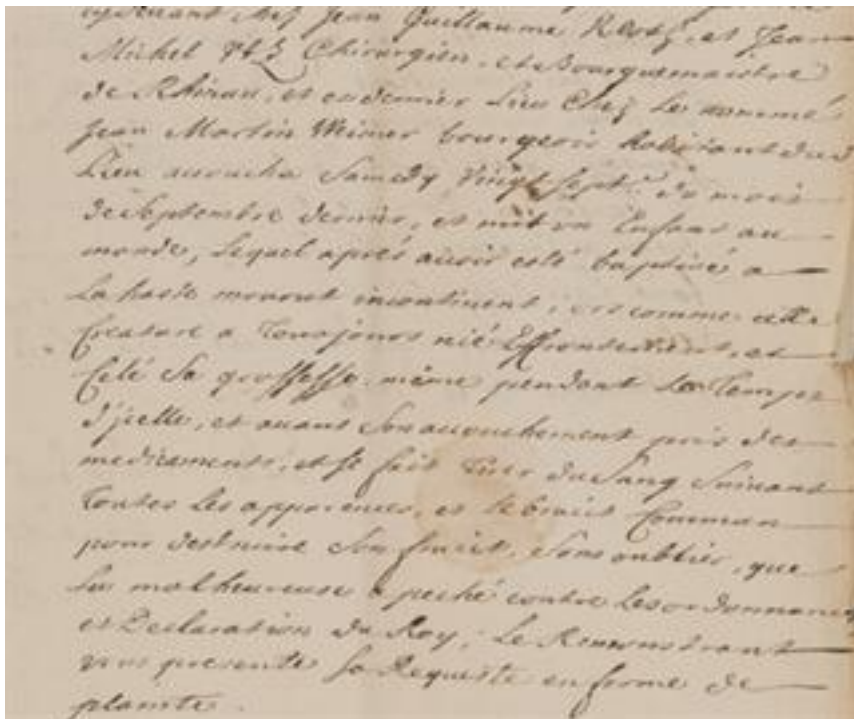 cydevant chez Jean Guillaume et Jean
Michel Chirurgien, et Bourguemaistre
de Rhinau, et en dernier Lieu Chez Le nommé
Jean Martin Weimer bourgeois habitant dud
Lieu accoucha Samedy Vingt Sept.e du mois
de Septembre dernier, et mit un Enfant au
monde, Lequel aprés avoir esté baptisé a
La haste mourut incontinent, et comme cette
Creature a Tousjours nié Effrontement, et
Celé Sa grossesse même pendant Le Temps
d'jcelle, et avant Son accouchement pris des
medicaments, et se fait Tirer du Sang Suivant
Toutes Les apparences, et Le bruit Commun
pour destruire Son fruit, Sans oublier, que
La malheureuse a peché contre Les ordonnances
et Declaration du Roy, Le Remonstrant
vous presente Sa Requeste en forme de
plainte.